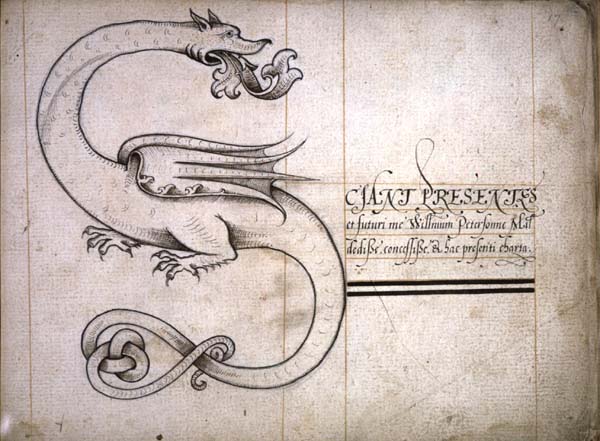 SCIANT PRESENTES
et futuri me Willmum Petersonne
dedisse, concessisse, & hac presenti charta.